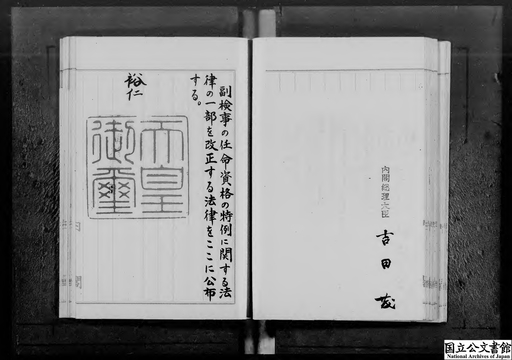 副検事の任命資格の特例に関する法
律の一部を改正する法律をここに公布
する。
裕仁
天皇
御璽
内閣総理大臣
吉田茂
国立公文書館
National Archives of Japan